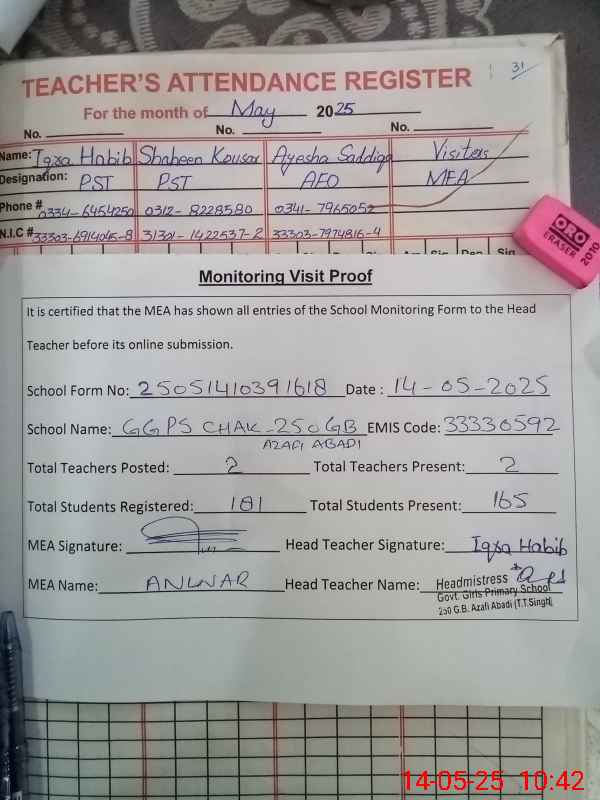 31
TEACHER'S ATTENDANCE REGISTER
For the month of May 2025
No. No. No.
Name: Iqra Habib Shaheen Kousar Ayesha Saddiqa Visiters
Designation: PST PST AEO MEA
Phone # 0334-6454250 0312-8228580 0341-7965052
N.I.C # 33303-6914045-8 31301-1422537-2 33303-7974816-4
ORO
ERASER
2010
Monitoring Visit Proof
It is certified that the MEA has shown all entries of the School Monitoring Form to the Head
Teacher before its online submission.
School Form No: 25051410391618 Date : 14-05-2025
School Name: GGPS CHAK-250GB EMIS Code: 33330592
AZAFI ABADI
Total Teachers Posted: 2 Total Teachers Present: 2
Total Students Registered: 181 Total Students Present: 165
MEA Signature: Head Teacher Signature: Iqra Habib
MEA Name: ANWAR Head Teacher Name: Headmistress
Govt. Girls Primary School
250 G.B. Azafi Abadi (T.T.Singh)
14-05-25 10:42